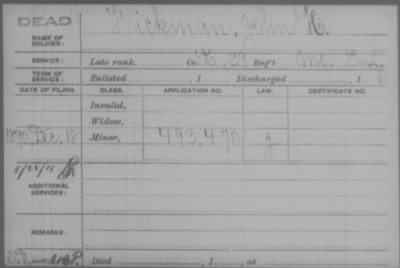 DEAD
Hickman, John H.
NAME OF
SOLDIER:
SERVICE: Late rank, Co. K, 39 Reg't Mo. Inf.
TERM OF
SERVICE: Enlisted , 1 Discharged , 1
DATE OF FILING. CLASS. APPLICATION NO. LAW. CERTIFICATE NO.
Invalid,
Widow,
1890, Dec. 18 Minor, 493.470 g
5/29/15
ADDITIONAL
SERVICES:
REMARKS:
Died , 1 , at